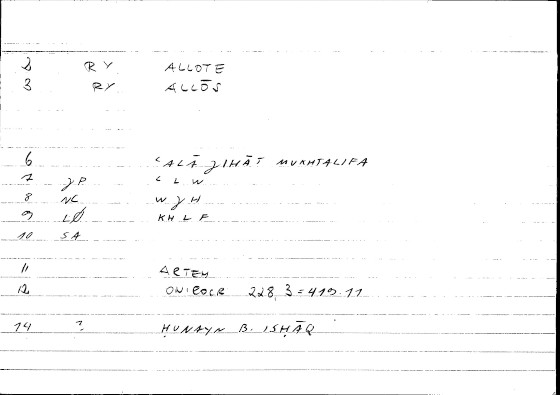 2 RY ALLOTE
3 RY ALLŌS
6 ʿALĀ ǧIHĀT MUKHTALIFA
7 ǧP ʿ L W
8 NC W ǧ H
9 LØ KH L F
10 SA
11 ARTEM
12 ONIROCR 228,3 = 419.11
14 ? ḤUNAYN B. ISḤĀQ